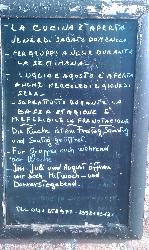 LA CUCINA È APERTA
VENERDÌ SABATO DOMENICA
PER GRUPPI ANCHE DURANTE
LA SETTIMANA.
LUGLIO E AGOSTO È APERTA
ANCHE MERCOLEDÌ E GIOVEDÌ
SERA.
SOPRATTUTTO DURANTE LA
BASSA STAGIONE È
PREFERIBILE LA PRENOTAZIONE
Die Küche ist am Freitag, Samstag
und Sontag geöffnet.
Für Gruppen auch während
der Woche
Im Juli und August öffnen
wir auch Mittwoch- und
Donnerstagabend.
TEL.